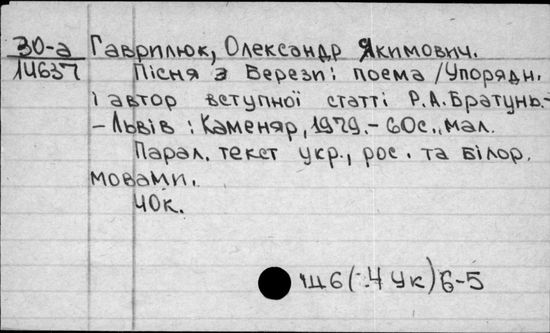 30-а Гаврилюк, Олександр Якимович.
14637 Пісня з Берези: поема /Упорядн.
і автор вступної статті Р.А.Братунь.-
-Львів : Каменяр, 1979.- 60с., мал.
Парал. текст укр., рос. та білор.
мовами.
40к.
Ш6(:4Ук)6-5